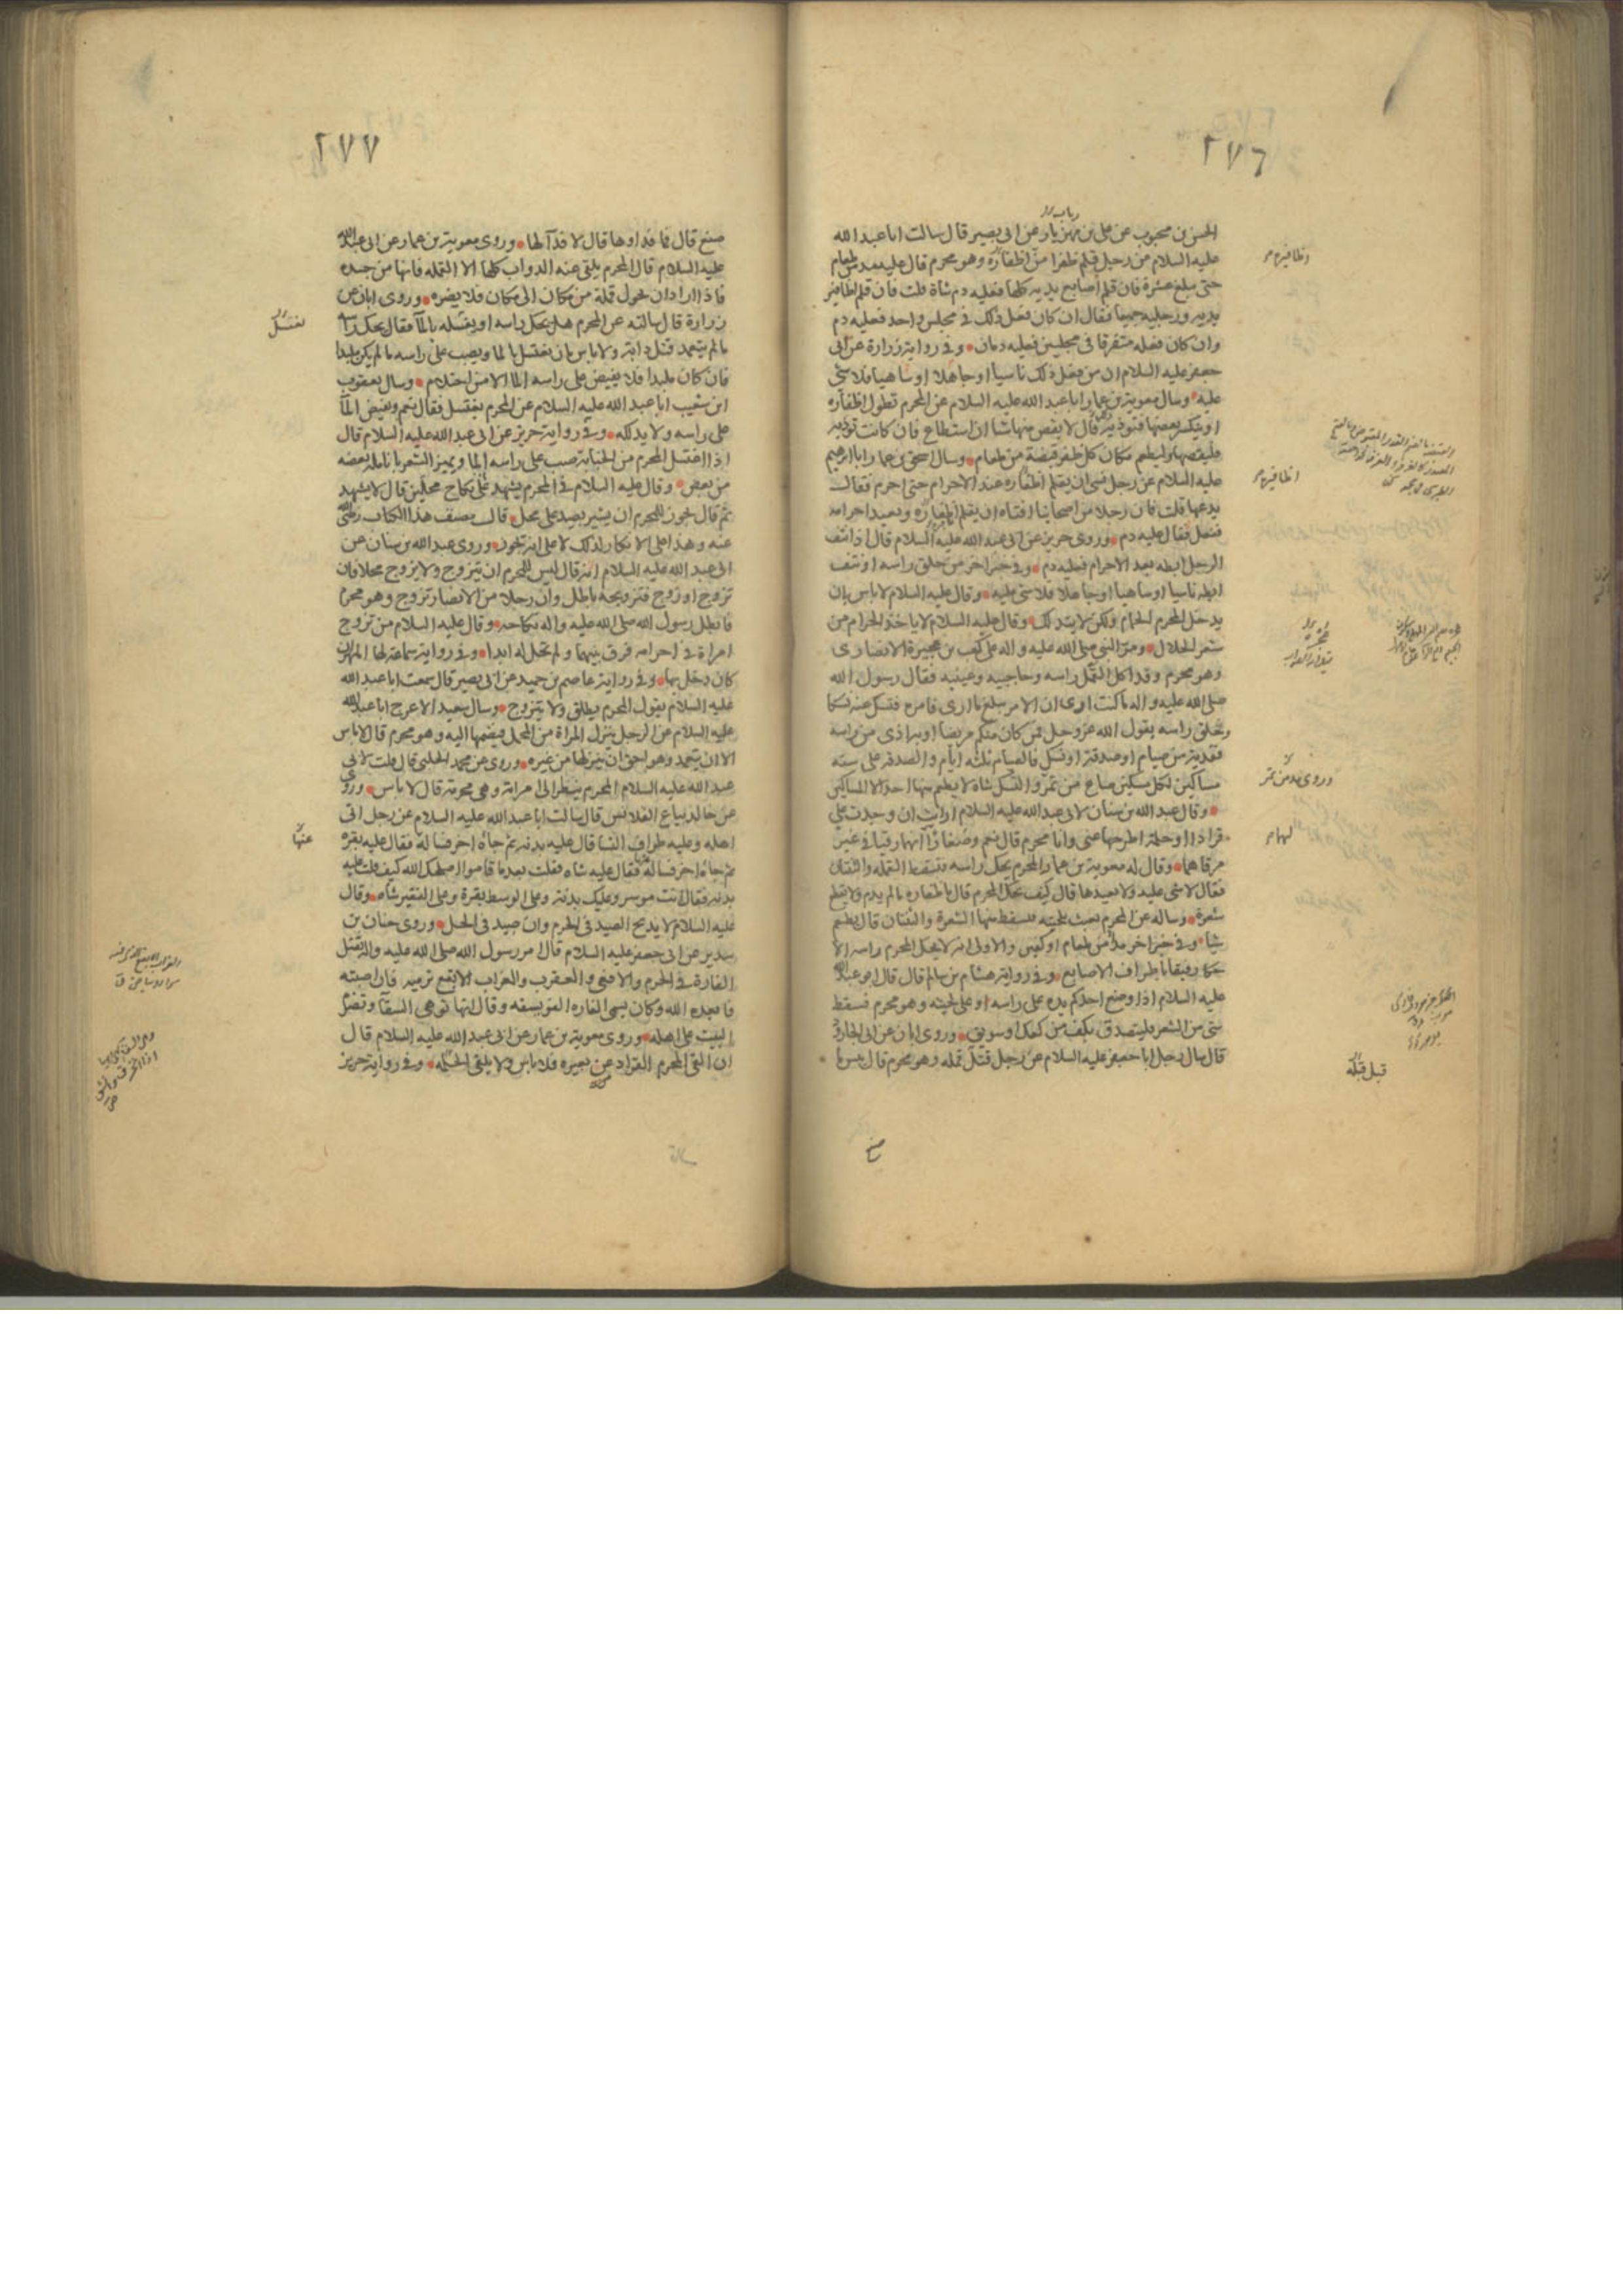 ٢٧٦
الحسن بن محبوب عن علي بن مهزيار عن ابي بصير قال سالت ابا عبد الله
عليه السلام من رجل قلم ظفرا من اظفاره وهو محرم قال عليه مد من طعام
حتى يبلغ عشرة فان قلم اصابع يديه كلها فعليه دم شاة قلت فان قلم اظافير
يديه ورجليه جميعا فقال ان كان فعل ذلك في مجلس واحد فعليه دم
وان كان فعله متفرقا في مجلسين فعليه دمان وفي رواية زرارة عن ابي
جعفر عليه السلام ان من فعل ذلك ناسيا او جاهلا او ساهيا فلا شي
عليه وسال معوية بن عمار ابا عبد الله عليه السلام عن المحرم تطول اظفاره
او ينكسر بعضها فتوذيه قال لا يقص منها شا ان استطاع فان كانت توذيه
فليقصها وليطعم مكان كل ظفر قبضة من طعام وسال اسحق بن عمار ابا ابرهيم
عليه السلام عن رجل نسى ان يقلم اظفاره عند الاحرام حتى احرم فقال
يدعها قلت فان رجلا من اصحابنا افتاه ان يقلم اظفاره ويعيد احرامه
ففعل فقال عليه دم وروى حريز عن ابي عبد الله عليه السلام قال اذا نتف
الرجل ابطه بعد الاحرام فعليه دم وفي خبر اخر من حلق راسه او نتف
ابطه ناسيا او ساهيا او جاهلا فلا شي عليه وقال عليه السلام لا باس بان
يدخل المحرم الحمام ولكن لا يتدلك وقال عليه السلام لا ياخذ الحرام من
شعر الحلال ومر النبي صلى الله عليه واله على كعب بن عجيرة الانصارى
وهو محرم وقد اكل القمل راسه وحاجبيه وعينيه فقال رسول الله
صلى الله عليه واله ما كنت ارى ان الامر يبلغ ما ارى فامره فنسك عنه نسكا
وتحلق راسه يقول الله عز وجل فمن كان منكم مريضا او به اذى من راسه
ففدية من صيام او صدقة او نسك فالصيام ثلثه ايام والصدقة على سته
مساكين لكل مسكين صاع من تمر والنسك شاه لا يطعم منها احد الا المساكين
وقال عبد الله بن سنان لابي عبد الله عليه السلام ارايت ان وجدت علي
قرادا او حلمة اطرحها عني وانا محرم قال نعم وصغارا انهما رقيا في غير
مرقاهما وقال له معوية بن عمار المحرم يحك راسه فتسقط القملة والثنتان
فقال لا شي عليه ولا يعيدها قال كيف يحك المحرم قال باظفاره ما لم يدم ولا يقطع
شعرة وساله عن المحرم يعبث بلحيته فتسقط منها الشعرة والثنتان قال يطعم
شيا وفي خبر اخر مدا من طعام او كفين والاولى انه لا يحك المحرم راسه الا
حكا رفيقا باطراف الاصابع وفي رواية هشام بن سالم قال قال ابو عبد الله
عليه السلام اذا وضع احدكم يده على راسه او على لحيته وهو محرم فسقط
شي من الشعر فليتصدق بكف من كعك او سويق وروى ابان عن ابي الجارود
قال سال رجل ابا جعفر عليه السلام عن رجل قتل قمله وهو محرم قال بئس ما
صنع
اظافيره
اظافيره
وروى مد من تمر
لهما
٢٧٧
صنع قال فما فداوها قال لا فدآ لها وروى معوية بن عمار عن ابي عبد الله
عليه السلام قال المحرم يلقى عنه الدواب كلها الا القمله فانها من جسده
فاذا اراد ان يحول قملة من مكان الى مكان فلا يضره وروى ابان عن
زرارة قال سالته عن المحرم هل يحك راسه او يغسله بالمآ فقال يحك راسه
ما لم يتعمد قتل دابة ولا باس بان يغتسل بالما ويصب على راسه ما لم يكن ملبدا
فان كان ملبدا فلا يفيض على راسه الما الا من احتلام وسال يعقوب
ابن شعيب ابا عبد الله عليه السلام عن المحرم يغتسل فقال نعم ويفيض المآ
على راسه ولا يدلكه وفي رواية حريز عن ابي عبد الله عليه السلام قال
اذا اغتسل المحرم من الجنابة صب على راسه الما ويميز الشعر بانامله بعضه
من بعض وقال عليه السلام في المحرم يشهد على نكاح محلين قال لا يشهد
ثم قال يجوز للمحرم ان يشير بصيد على محل قال مصنف هذا الكتاب رضي الله
عنه وهذا على الانكار لذلك لا على انه يجوز وروى عبد الله بن سنان عن
ابي عبد الله عليه السلام انه قال ليس للمحرم ان يتزوج ولا يزوج محلا فان
تزوج او زوج فتزويجه باطل وان رجلا من الانصار تزوج وهو محرم
فابطل رسول الله صلى الله عليه واله نكاحه وقال عليه السلام من تزوج
امراة في احرامه فرق بينهما ولم تحل له ابدا وفي رواية سماعة لها المهر ان
كان دخل بها وفي رواية عاصم بن حميد عن ابي بصير قال سمعت ابا عبد الله
عليه السلام يقول المحرم يطلق ولا يتزوج وسال سعيد الاعرج ابا عبد الله
عليه السلام عن الرجل ينزل المراة من المحمل فيضمها اليه وهو محرم قال لا باس
الا ان يتعمد وهو احق ان ينزلها من غيره وروى عن محمد الحلبي قال قلت لابي
عبد الله عليه السلام المحرم ينظر الى امراته وهي محرمة قال لا باس وروى
عن خالد بياع القلانس قال سالت ابا عبد الله عليه السلام عن رجل اتى
اهله وعليه طواف النسا قال عليه بدنه ثم جاه اخر فساله فقال عليه بقره
ثم جاه اخر فساله فقال عليه شاه فقلت بعد ما قاموا اصلحك الله كيف قلت عليه
بدنه فقال انت موسر وعليك بدنة وعلى الوسط بقرة وعلى الفقير شاه وقال
عليه السلام لا يذبح الصيد في الحرم وان صيد في الحل وروى حنان بن
سدير عن ابي جعفر عليه السلام قال امر رسول الله صلى الله عليه واله بقتل
الفارة في الحرم والافعى والعقرب والغراب الابقع ترميه فان اصبته
فابعده الله وكان يسمى الفاره الفويسقه وقال انها توهى السقآ وتضرم
البيت على اهله وروى معوية بن عمار عن ابي عبد الله عليه السلام قال
ان القى المحرم القراد عن بعيره فلا باس ولا يلقى الحلمه وفي رواية حريز
يغتسل
عنها